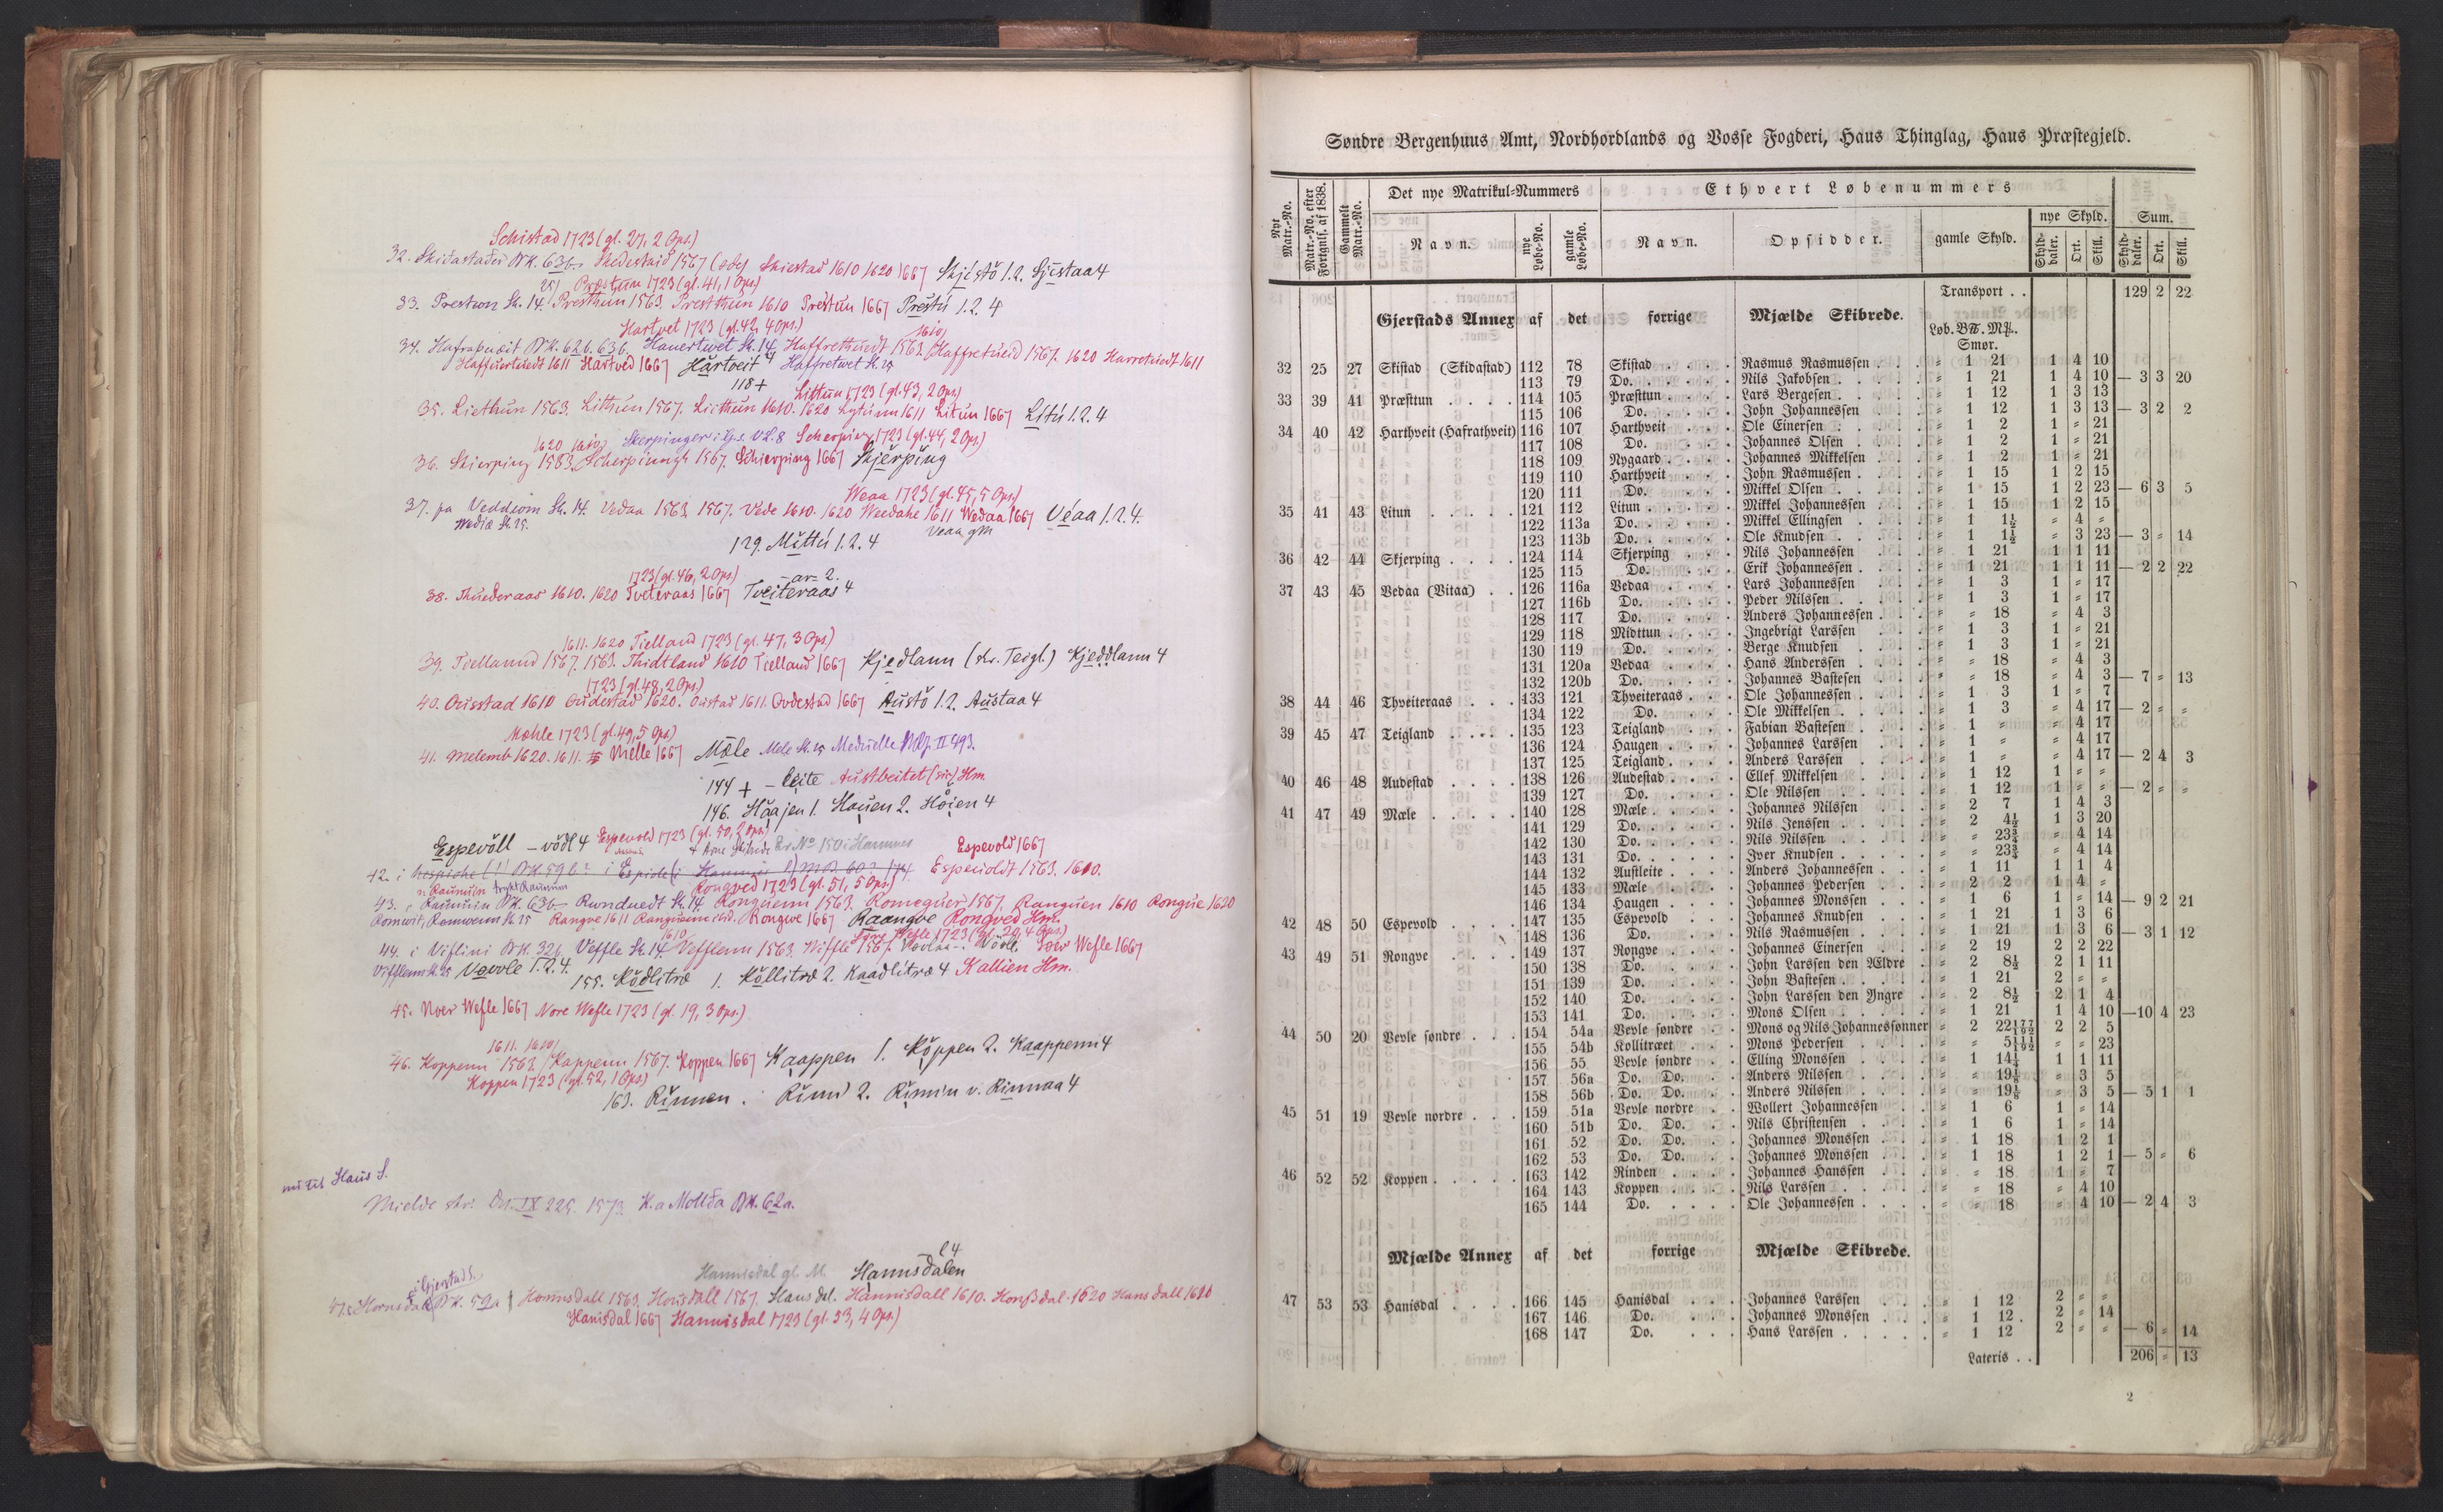 Schistad 1723 (gl. 27, 2 Ops.)
32. Skidastader BK. 63b Skedestaid 1567 Skiestad 1610 1620 1667 Skjestö 1.2. Sjistaa 4
Præstun 1723 (gl. 41, 1 Ops)
33. Prestwon St. 14. Presthun 1563. Prestthun 1610 Prestun 1667 Prestú 1.2.4
Hartvet 1723 (gl. 42, 4 Ops.)
34. Hafraþueit BK. 62b. 63b. Hauertwet St. 14 Haffrethuedt 1563. Haffretueid 1567. 1620 Harretuedt 1611
Haffuertuedt 1611 Hartved 1667 Hartveit 4 Haffretwet St. 15
118 +
Littun 1723 (gl. 43, 2 Ops)
35. Liethun 1563. Litthun 1567. Liethun 1610. 1620 Lytunn 1611 Litun 1667 Litú 1.2.4
Skerpinger VL. 8 Scherping 1723 (gl. 44, 2 Ops.)
1620 1610
36. Skierping 1563. Scherpinngh 1567. Schierping 1667 Skjerping
Weaa 1723 (gl. 45, 5 Ops)
37. pa Veddiom St. 14. Vedaa 1563. 1567. Vede 1610. 1620 Weedahe 1611 Wedaa 1667 Véaa 1.2.4.
Wedia St. 15. Veaa gM
129. Mittú 1.2.4
1723 (gl. 46, 2 Ops) –ar– 2.
38. Thuederaas 1610. 1620 Tveteraas 1667 Tveiteraas 4
1611. 1620 Tielland 1723 (gl. 47, 3 Ops)
39. Tiellannd 1567. 1563. Thidtland 1610 Tielland 1667 Kjedlann (skr. Teigl.) Kjeddlann 4
1723 (gl. 48, 2 Ops)
40. Ousstad 1610 Oudestad 1620. Oustad 1611. Oudestad 1667 Austö 1.2. Austaa 4
Mæhle 1723 (gl. 49, 5 Ops)
41. Melemb 1620. 1611. Melle 1667 Mæle Mele St. 15 Meduelle II 493.
144 + – leite Austleitet (sic) Hm
146. Haajen 1. Hauen 2. Höien 4
Espevöll – vödl 4 Espevold 1723 (gl. 50, 2 Ops) Espevold 1667
42. i Espeuoldt 1563. 1610.
Rongved 1723 (gl. 51, 5 Ops)
43. Raunuin BK. 63b Runduedt St. 14 Ronguenn 1563. Romeguer 1567. Ranguen 1610 Rongue 1620
Romwit, Romwenn St. 15 Rangve 1611 Ranguenn ibid. Rongwe 1667 Raangve Rongved Hm.
Wefle 1723 (gl. 20, 4 Ops.)
44. i Viflini BK. 32b. Veffle St. 14. Vefflenn 1563. Wiffle 1567. Wefle 1667
Vifflenn St. 15 Vevle 1.2.4. 155. Ködlitræ 1. Köllitræ 2. Kaadlitræ 4 Kallien Hm.
45. Noer Wefle 1667 Nore Wefle 1723 (gl. 19, 3 Ops.)
1611. 1610
46. Koppenn 1563. Kappenn 1567. Koppen 1667 Kaappen 1. Köppen 2. Kaappenn 4
Koppen 1723 (gl. 52, 1 Ops)
163. Rinnen. Rinni 2. Rinnin v. Rinnaa 4
nú til Haus S.
Mielde skr. Dn. IX 225. 1573. K. a Mollda BK. 62a.
l 4
Hannisdal gl. M. Hannsdalen
i Gjerstad S.
47. BK. 59a Honnsdall 1563. Honsdall 1567. Hansdal. Hannisdall 1610. Honssdal 1620 Hansdall 1610
Hanisdal 1667 Hannisdal 1723 (gl. 53, 4 Ops.)
Søndre Bergenhuus Amt, Nordhordlands og Vosse Fogderi, Haus Thinglag, Haus Præstegjeld.
Nyt Matr.-No. Matr.-No. efter Fortegnis. af 1838. Gammelt Matr.-No. Det nye Matrikul-Nummers Ethvert Løbenummers
Navn. nye Løbe-No. gamle Løbe-No. Navn. Opsidder. gamle Skyld. nye Skyld. Sum.
Skylddaler. Ort. Skill. Skylddaler. Ort. Skill.
Transport . . 129 2 22
Gjerstads Annex af det forrige Mjælde Skibrede. Løb. B℔. M℔.
Smør.
32 25 27 Skistad (Skidastad) 112 78 Skistad Rasmus Rasmussen " 1 21 1 4 10
113 79 Do. Nils Jakobsen " 1 21 1 4 10 — 3 3 20
33 39 41 Præsttun 114 105 Præsttun Lars Bergesen " 1 12 1 3 13
115 106 Do. John Johannessen " 1 12 1 3 13 — 3 2 2
34 40 42 Harthveit (Hafrathveit) 116 107 Harthveit Ole Einersen " 1 2 1 " 21
117 108 Do. Johannes Olsen " 1 2 1 " 21
118 109 Nygaard Johannes Mikkelsen " 1 2 1 " 21
119 110 Harthveit John Rasmussen " 1 15 1 2 15
120 111 Do. Mikkel Olsen " 1 15 1 2 23 — 6 3 5
35 41 43 Litun 121 112 Litun Mikkel Johannessen " 1 15 1 2 15
122 113a Do. Mikkel Ellingsen " 1 1½ " 4 "
123 113b Do. Ole Knudsen " 1 1½ " 3 23 — 3 " 14
36 42 44 Skjerping 124 114 Skjerping Nils Johannessen " 1 21 1 1 11
125 115 Do. Erik Johannessen " 1 21 1 1 11 — 2 2 22
37 43 45 Vedaa (Vitaa) 126 116a Vedaa Lars Johannessen " 1 3 1 " 17
127 116b Do. Peder Nilssen " 1 3 1 " 17
128 117 Do. Anders Johannessen " " 18 " 4 3
129 118 Midttun Ingebrigt Larssen " 1 3 1 " 21
130 119 Do. Berge Knudsen " 1 3 1 " 21
131 120a Vedaa Hans Anderssen " " 18 " 4 3
132 120b Do. Johannes Bastesen " " 18 " 4 3 — 7 " 13
38 44 46 Thveiteraas 133 121 Thveiteraas Ole Johannessen " 1 3 1 " 7
134 122 Do. Ole Mikkelsen " 1 3 " 4 17 — 2 " "
39 45 47 Teigland 135 123 Teigland Fabian Bastesen " 1 " " 4 17
136 124 Haugen Johannes Larssen " 1 " " 4 17
137 125 Teigland Anders Larssen " 1 " " 4 17 — 2 4 3
40 46 48 Audestad 138 126 Audestad Ellef Mikkelsen " 1 12 1 " "
139 127 Do. Ole Nilssen " 1 12 1 " " — 2 " "
41 47 49 Mæle 140 128 Mæle Johannes Nilssen " 2 7 1 4 3
141 129 Do. Nils Jenssen " 2 4½ 1 3 20
142 130 Do. Nils Nilssen " " 23¾ " 4 14
143 131 Do. Iver Knudsen " " 23¾ " 4 14
144 132 Austleite Anders Johannessen " 1 11 1 1 4
145 133 Mæle Johannes Pedersen " 2 2 1 4 "
146 134 Haugen Johannes Monssen " 1 6 1 " 14 — 9 2 21
42 48 50 Espevold 147 135 Espevold Johannes Knudsen " 1 21 1 3 6
148 136 Do. Nils Rasmussen " 1 21 1 3 6 — 3 1 12
43 49 51 Rongve 149 137 Rongve Johannes Einersen " 2 19 2 2 22
150 138 Do. John Larssen den Ældre " 2 8½ 2 1 11
151 139 Do. John Bastesen " 1 21 2 " "
152 140 Do. John Larssen den Yngre " 2 8½ 2 1 4
153 141 Do. Mons Olsen " 1 21 1 4 10 —10 4 23
44 50 20 Vevle søndre 154 54a Vevle søndre Mons og Nils Johannessønner " 2 22 77/192 2 2 5
155 54b Kollitræet Mons Pedersen " " 5 111/192 " " 23
156 55 Vevle søndre Elling Monssen " 1 14¼ 1 1 11
157 56a Do. Do. Anders Nilssen " " 19⅛ " 3 5
158 56b Do. Do. Anders Nilssen " " 19⅛ " 3 5 — 5 1 1
45 51 19 Vevle nordre 159 51a Vevle nordre Wollert Johannessen " 1 6 1 " 14
160 51b Do. Do. Nils Christensen " 1 6 1 " 14
161 52 Do. Do. Johannes Monssen " 1 18 1 2 1
162 53 Do. Do. Johannes Monssen " 1 18 1 2 1 — 5 " 6
46 52 52 Koppen 163 142 Rinden Johannes Hanssen " " 18 1 " 7
164 143 Koppen Nils Larssen " " 18 " 4 10
165 144 Do. Ole Johannessen " " 18 " 4 10 — 2 4 3
Mjælde Annex af det forrige Mjælde Skibrede.
47 53 53 Hanisdal 166 145 Hanisdal Johannes Larssen " 1 12 2 " "
167 146 Do. Johannes Monssen " 1 12 2 " 14
168 147 Do. Hans Larssen " 1 12 2 " " — 6 " 14
Lateris . . 206 " 13
2